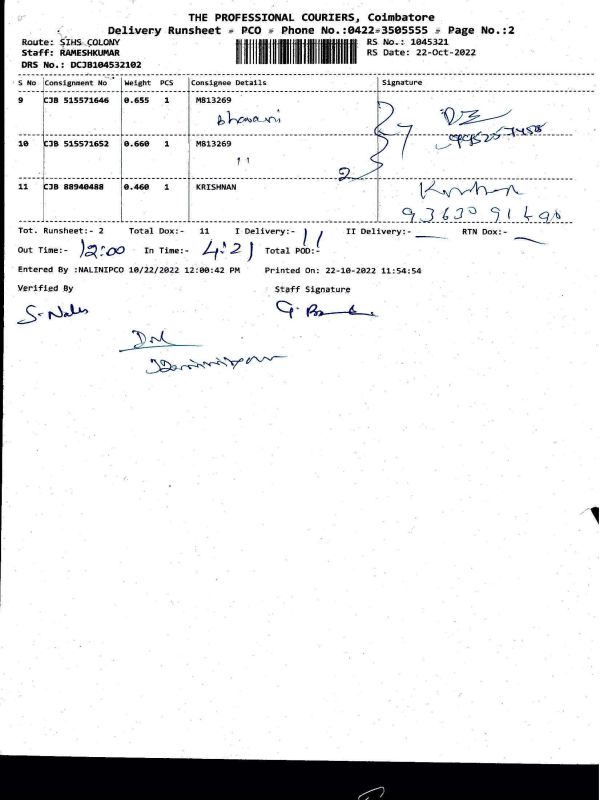 THE PROFESSIONAL COURIERS, Coimbatore
Delivery Runsheet * PCO * Phone No.:0422-3505555 * Page No.:2
Route: SIHS COLONY
RS No.: 1045321
Staff: RAMESHKUMAR
RS Date: 22-Oct-2022
DRS No.: DCJB104532102
S No Consignment No Weight PCS Consignee Details Signature
9 CJB 515571646 0.655 1 M813269
Bhavani
10 CJB 515571652 0.660 1 M813269
11 CJB 88940488 0.460 1 KRISHNAN
Tot. Runsheet:- 2 Total Dox:- 11 I Delivery:- 11 II Delivery:- RTN Dox:-
Out Time:- 12:00 In Time:- 4:21 Total POD:-
Entered By :NALINIPCO 10/22/2022 12:00:42 PM Printed On: 22-10-2022 11:54:54
Verified By Staff Signature